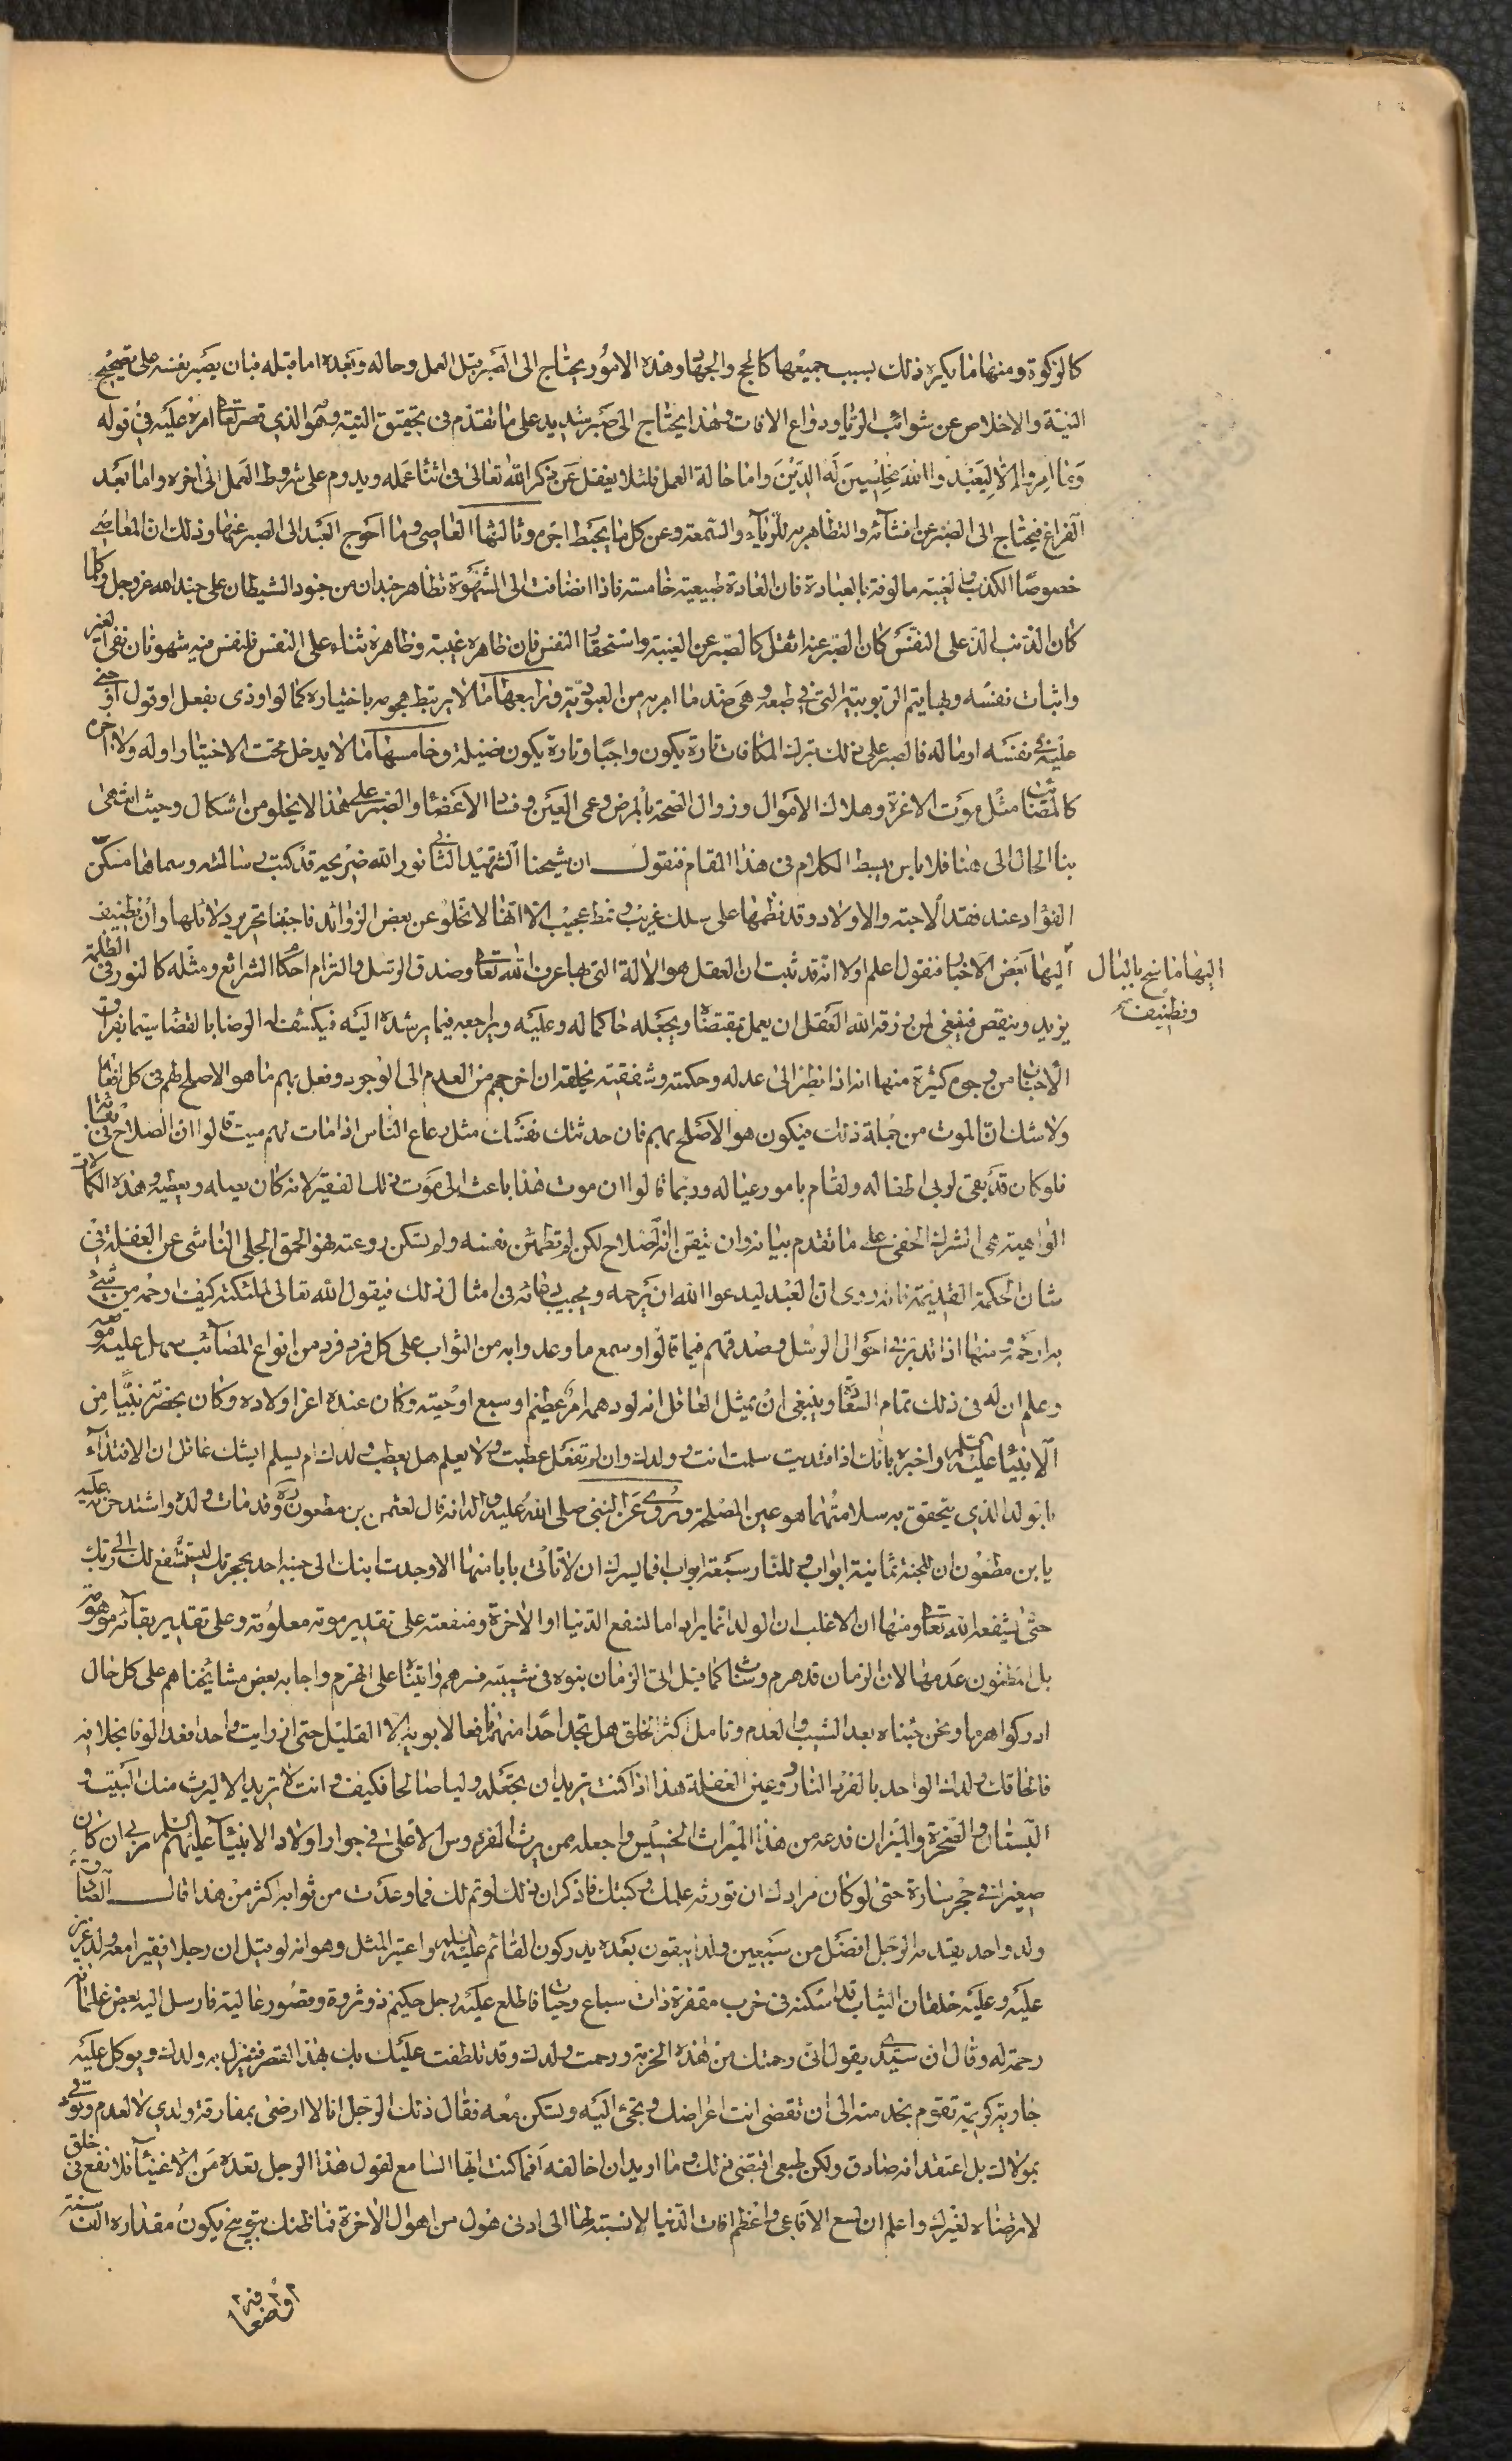 كالزكوة ومنها ما يكره ذلك بسبب جميعها كالحج والجهاد وهذه الامور يحتاج الى الصبر قبل العمل وحاله وبعده اما قبله فبان يصبر نفسه على تصحيح
النية والاخلاص عن شوائب الريا ودواع الافات وهذا يحتاج الى صبر شديد على ما تقدم في تحقيق النية وهو الذي قصر تعالى امره عليه في قوله
وما امروا الا ليعبدوا الله مخلصين له الدين واما حالة العمل فلئلا يغفل عن ذكر الله تعالى في اثنا عمله ويدوم على شروط العمل الى اخره واما بعد
الفراغ فيحتاج الى الصبر عن افشائه والتظاهر به للرياء والسمعة وعن كل ما يحبط اجره وثالثها المعاصي وما احوج العبد الى الصبر عنها وذلك ان المعاصي
خصوصا الكذب والغيبة مالوفة بالعبادة فان العادة طبيعية خامسة فاذا انضافت الى الشهوة تظاهر جندان من جنود الشيطان على جند الله عز وجل فكلما
كان الذنب الذ على النفس كان الصبر عنه اثقل كالصبر عن الغيبة واستحقار النفس فان ظاهره غيبة وظاهره ثناء على النفس فللنفس فيه شهوتان نفي الغير
واثبات نفسه وبها يتم الربوبية التي في طبعه وهي ضد ما امر به من العبودية ورابعها ما لا يرتبط هجومه باختياره كما لو اوذي بفعل او قول او جنى
عليه في نفسه او ماله فالصبر على ذلك بترك المكافات تارة يكون واجبا وتارة يكون فضيلة وخامسها ما لا يدخل تحت الاختيار اوله ولا اخره
كالمصائب مثل موت الاعزة وهلاك الاموال وزوال الصحة بالمرض وعمى العين وفساد الاعضا والصبر على هذا لا يخلو من اشكال وحيث انتهى
بنا الحال الى هنا فلا باس ببسط الكلام في هذا المقام فنقول ان شيخنا الشهيد الثاني نور الله ضريحه قد كتب رسالته وسماها مسكن
الفؤاد عند فقد الاحبة والاولاد وقد نظمها على سلك غريب ونمط عجيب الا انها لا تخلو عن بعض الزوائد فاحببنا تجريد دلائلها وان نضيف
اليها بعض الاخبار فنقول اعلم اولا انه قد ثبت ان العقل هو الالة التي بها عرف الله تعالى وصدق الرسل والتزام احكام الشرائع ومثله كالنور في الظلمة
يزيد وينقص فينبغي لمن رزقه الله العقل ان يعمل بمقتضاه ويجعله حاكما له وعليه ويراجعه فيما يرشده اليه فيكشف له الرضا بالقضا سيما بفراق
الاحباب من وجوه كثيرة منها انه اذا نظر الى عدله وحكمته وشفقته بخلقه ان اخرجهم من العدم الى الوجود وفعل بهم ما هو الاصلح لهم في كل افعاله
ولا شك ان الموت من جملة ذلك فيكون هو الاصلح بهم فان حدثتك نفسك مثل رعاع الناس اذا مات لهم ميت قالوا ان الصلاح في بقائه
فلو كان قد بقي لربى اطفاله ولقام بامور عياله وربما قالوا ان موت هذا باعث الى موت ذلك الفقير لانه كان يصله ويعطيه وهذه الكلمات
الواهية هي الشرك الخفي على ما تقدم بيانه وان تيقن انه الصلاح لكن لم تطمئن نفسه ولم يسكن روعته فهو الحمق الجلي الناشي عن الغفلة في
شان الحكمة القديمة فانه روى ان العبد ليدعوا الله ان يرحمه ويجيب دعائه في امثال ذلك فيقول الله تعالى لملئكته كيف ارحمه من شيء
به ارحمه ومنها اذا تدبر في احوال الرسل وصدقهم فيما قالوا وسمع ما وعدوا به من الثواب على كل فرد فرد من انواع المصائب سهل عليه موقعه
وعلم ان له في ذلك تمام السعادة وينبغي ان يمثل العاقل انه لو دهمه امر عظيم او سبع او حية وكان عنده اعز اولاده وكان بحضرته نبيا من
الانبيا عليهم السلم واخبره بانك اذا افتديت سلمت انت وولدك وان لم تفعل عطبت ولا يعلم هل يعطب ولدك ام يسلم ايشك عاقل ان الافتداء
بالولد الذي يتحقق به سلامتهما هو عين المصلحة وروي عن النبي صلى الله عليه واله انه قال لعثمن بن مظعون ره وقد مات ولده واشتد حزنه عليه
يا بن مظعون ان للجنة ثمانية ابواب وللنار سبعة ابواب افما يسرك ان لا تأتي بابا منها الا وجدت ابنك الى جنبه اخذ بحجزتك ليستشفع لك الى ربك
حتى يشفعه الله تعالى ومنها ان الاغلب ان الولد انما يراد اما لنفع الدنيا او الاخرة ومنفعته على تقدير موته معلومة وعلى تقدير بقائه موهومة
بل مظنون عدمها لان الزمان قد هرم وشاب كما قيل اتى الزمان بنوه في شبيبته فسرهم واتيناه على الهرم واجابه بعض مشائخنا هم على كل حال
ادركوا هرما ونحن جئناه بعد الشيب والعدم وتامل اكثر الخلق هل تجد احدا منهم نافعا لابويه الا القليل حتى اذ رايت واحدا فعد الوفا بخلافه
فالحاقك ولدك الواحد بالفرد النادر عين الغفلة هذا اذا كنت تريد ان يجعله وليا صالحا فكيف وانت لا تريد الا ليرث منك البيت و
البستان والصخرة والميزان فدعه من هذا الميراث الخسيس واجعله ممن يرث الفردوس الاعلى في جوار اولاد الانبيآ عليهم السلم مربى ان كان
صغيرا في حجر سارة حتى لو كان مرادك ان تورثه علمك وكتبك فاذكر ان ذلك لو تم لك فما وعدت من ثوابه اكثر من هذا قال الصادق ع
ولد واحد يقدمه الرجل افضل من سبعين ولدا يبقون بعده يدركون القائم عليه السلم واعتبر المثل وهو انه لو قيل ان رجلا فقيرا معه ولد عزيز
عليه وعليه خلقان الثياب قد اسكنه في خرب مقفرة ذات سباع وحيات فاطلع عليه رجل حكيم ذو ثروة وقصور عالية فارسل اليه بعض غلمانه
رحمة له وقال ان سيدي يقول اني رحمتك من هذه الخربة ورحمت ولدك وقد تلطفت عليك بك بهذا القصر فتنزل به ولدك ويوكل عليه
جارية كريمة تقوم بخدمته الى ان تقضي انت اغراضك وتجئ اليه وتسكن معه فقال ذلك الرجل انا لا ارضى بمفارقة ولدي لا لعدم وثوقي
بمولاك بل اعتقد انه صادق ولكن طبعي اقتضى ذلك وما اريد ان اخالفه افما كنت ايها السامع لقول هذا الرجل تعده من الاغنيآ فلا تقع في خلق
لا ترضاه لغيرك واعلم ان لسع الافاعي واعظم افات الدنيا لا نسبة لها الى ادنى هول من اهوال الاخرة فما ظنك بتوبيخ يكون مقداره الف سنة
اليها ما سنح بالبال
ونضيف
او اضعافه